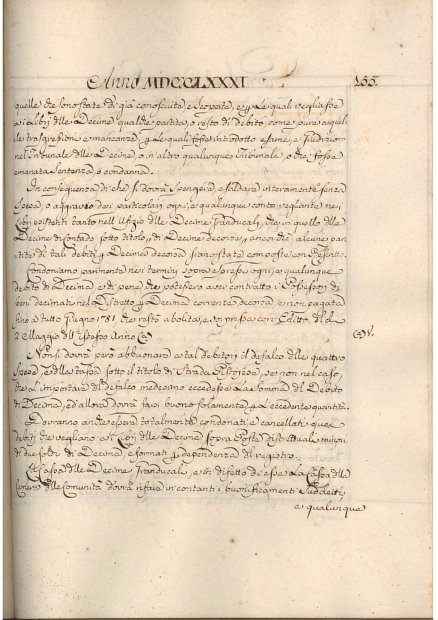 Anno MDCCLXXXI 155.
quelle che sono state di già conosciute, e scoperte, e per le quali vegliasse
a i libri delle Decime qualche partita, o resto di debito, come pure a quel
le trasgressioni e mancanze per le quali fosse introdotto esame, e giudizio
nel Tribunale delle Decime, o in altro qualunque Tribunale, o che fosse
emanata sentenza o condanna.
In conseguenza di che si dovrà spengere, e saldare interamente senza
spesa, o aggravio dei particolari ogni, e qualunque conto vegliante ne,
libri esistenti tanto nell'Ufizio delle Decime Granducali, che in quello delle
Decime del Contado sotto titolo, di Decime decorse, ancorchè alcune par
tite di tali debiti per Decime decorse siano state composte con Rescritto.
Condoniamo parimente nei termini sopra espressi ogni, e qualunque
debito di Decima, e di pene che potessero aver contratto i Possessori di
beni decimati nel Distretto per Decima corrente decorsa e non pagata
fino a tutto Giugno 1781. che restò abolita, e soppressa con Editto del dì
2. Maggio dell'istesso Anno CIV.
Non si dovrà però abbuonare a tai debitori il defalco delle quattro
per la Tassa sotto il titolo di Strada Pistoiese, se non nel caso,
che l'importare di defalco medesimo eccedesse la somma del Debito
di Decima, ed allora dovrà farsi buono solamente per l'eccedente quantità.
Dovranno anche essere totalmente condonati e cancellati quei
debiti che vegliano ai Libri delle Decime sopra Poste distrettuali minori
di due soldi di Decima, e formati per dependenza del registro.
La Cassa delle Decime Granducali, e in difetto di essa la Cassa della
Camera delle Comunità dovrà rifare in contanti i buonificamenti suddetti,
e qualunque